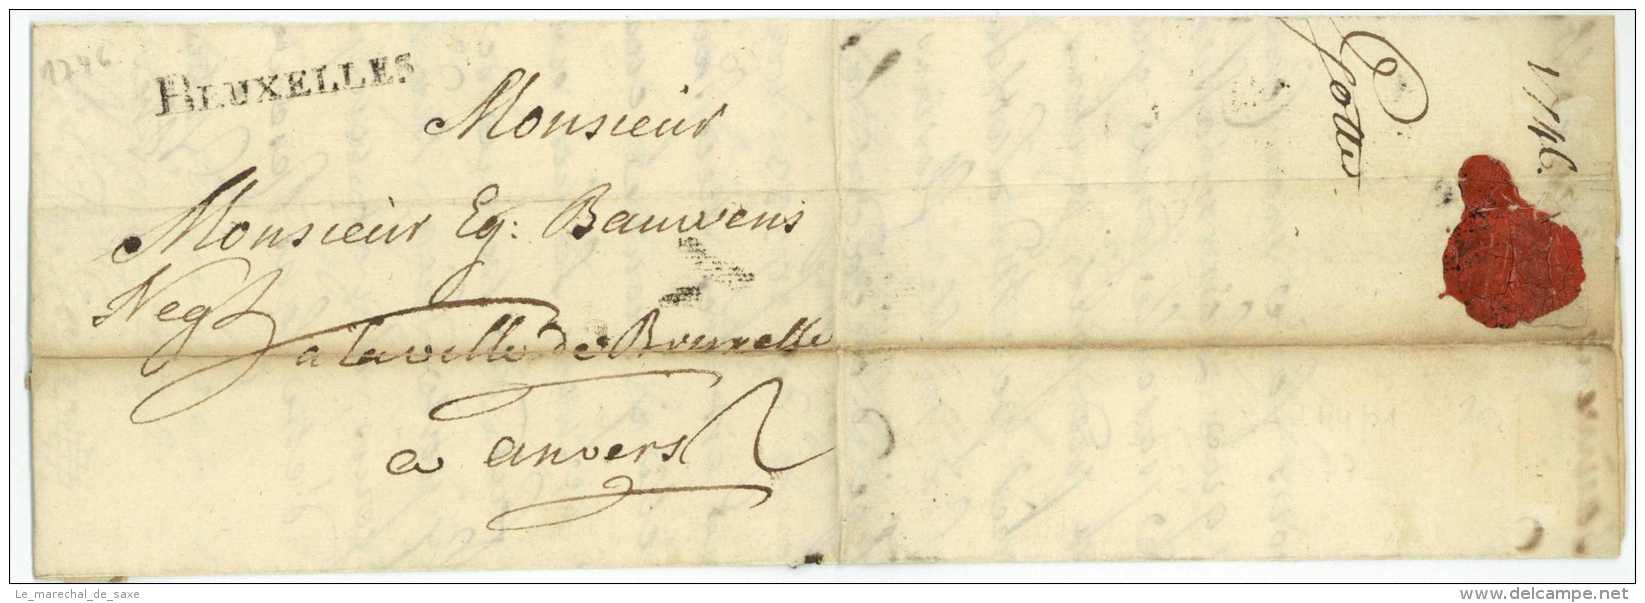 1746
BRUXELLES
Monsieur
Monsieur Eg: Bauwens
Negt
a la ville de Bruxelle
a anvers
1746
Le_marechal_de_saxe
delcampe.net